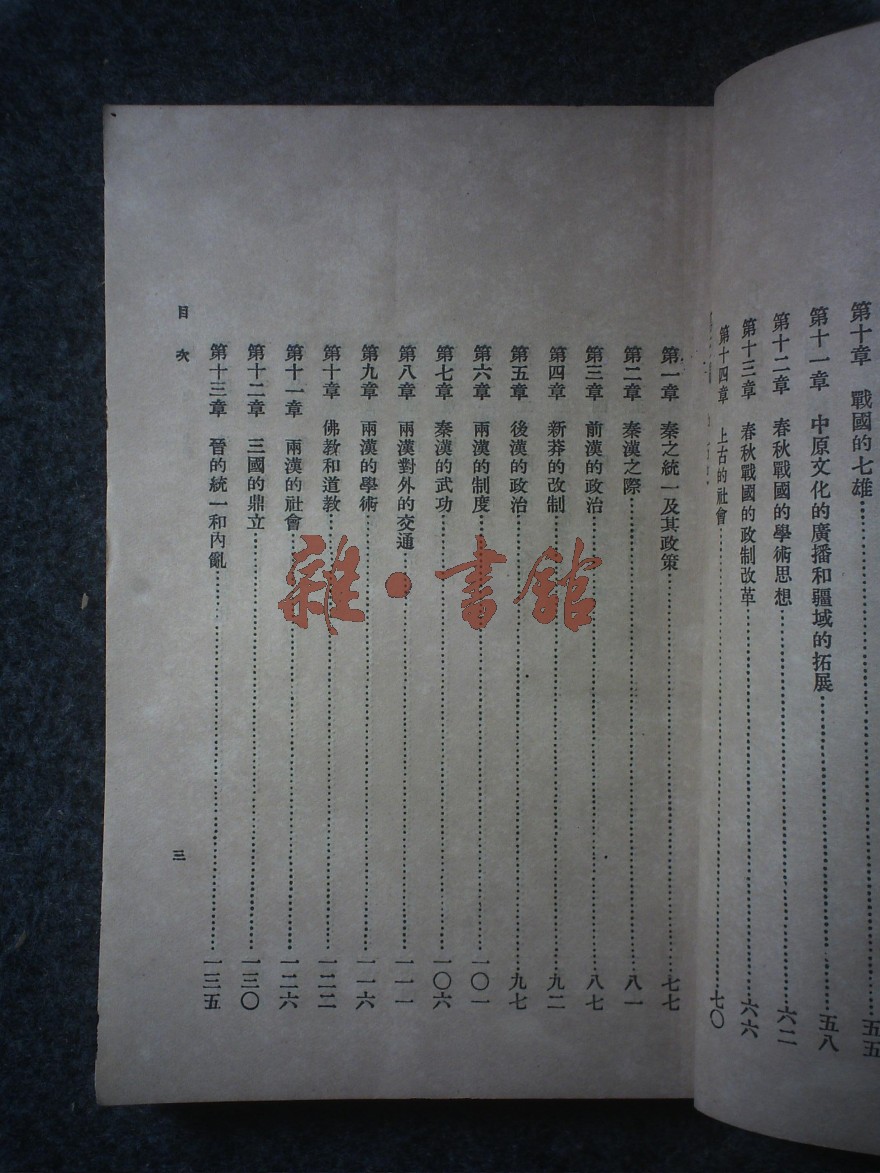 第十章 戰國的七雄……五五
第十一章 中原文化的廣播和疆域的拓展……五八
第十二章 春秋戰國的學術思想……六二
第十三章 春秋戰國的政制改革……六六
第十四章 上古的社會……七〇
第一章 秦之統一及其政策……七七
第二章 秦漢之際……八一
第三章 前漢的政治……八七
第四章 新莽的改制……九二
第五章 後漢的政治……九七
第六章 兩漢的制度……一〇一
第七章 秦漢的武功……一〇六
第八章 兩漢對外的交通……一一一
第九章 兩漢的學術……一一六
第十章 佛教和道教……一二二
第十一章 兩漢的社會……一二六
第十二章 三國的鼎立……一三〇
第十三章 晉的統一和內亂……一三五
目次
三
雜·書館